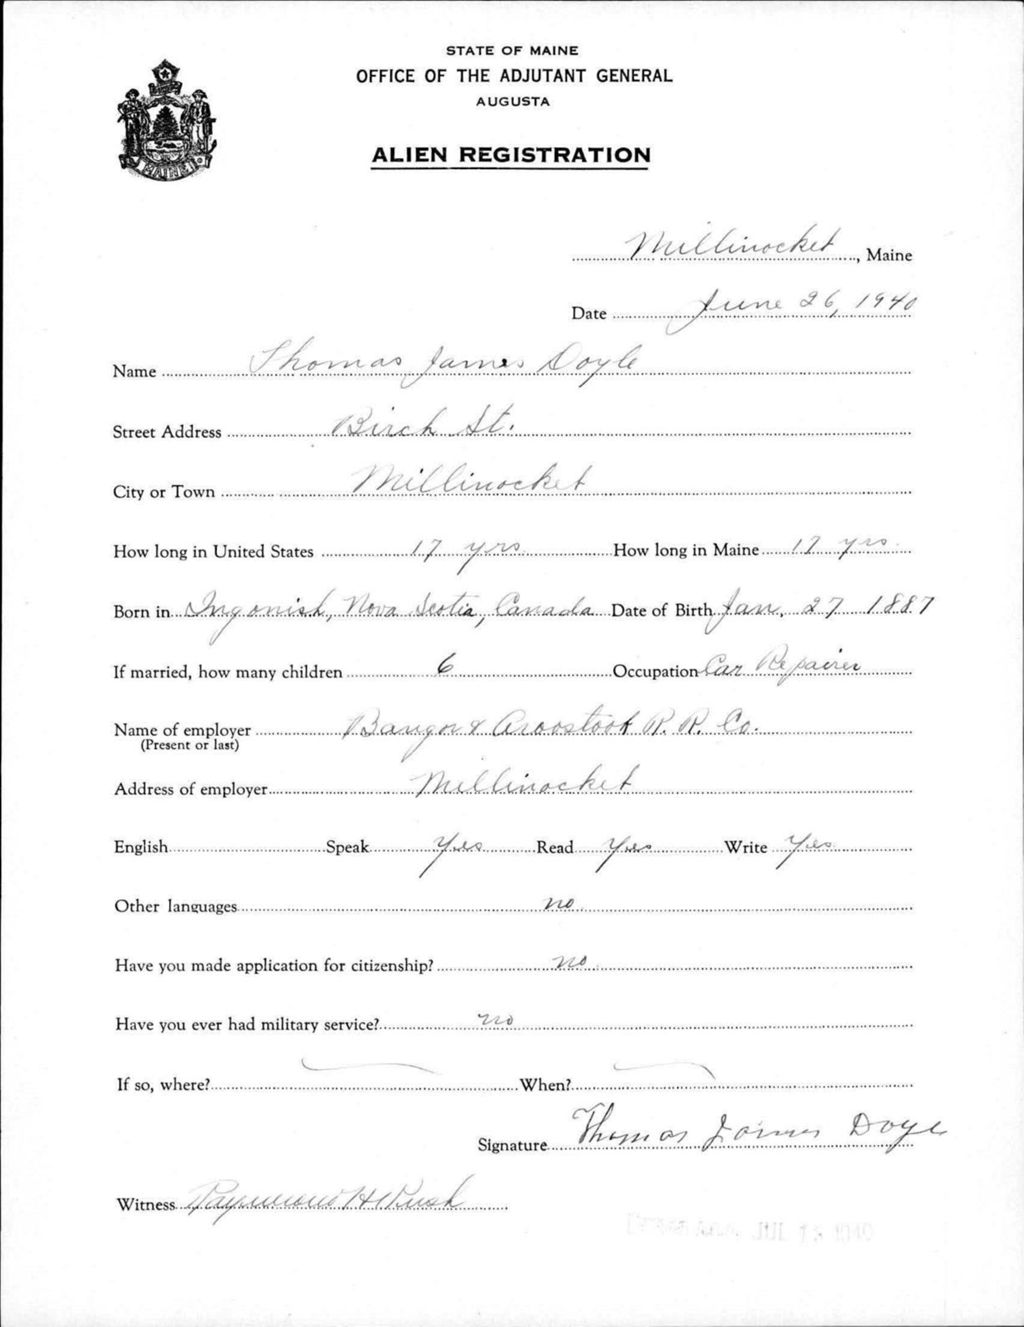 STATE OF MAINE
OFFICE OF THE ADJUTANT GENERAL
AUGUSTA
ALIEN REGISTRATION
MAINE
Millinocket, Maine
Date June 26, 1940
Name Thomas James Doyle
Street Address Birch St.
City or Town Millinocket
How long in United States 17 yrs How long in Maine 17 yrs
Born in Ingonish, Nova Scotia, Canada Date of Birth Jan. 27 1887
If married, how many children 6 Occupation Car Repairer
Name of employer Bangor & Aroostook R. R. Co.
(Present or last)
Address of employer Millinocket
English Speak Yes Read Yes Write Yes
Other languages no
Have you made application for citizenship? no
Have you ever had military service? no
If so, where? When?
Signature Thomas James Doyle
Witness Raymond H Rush
JUL 1940